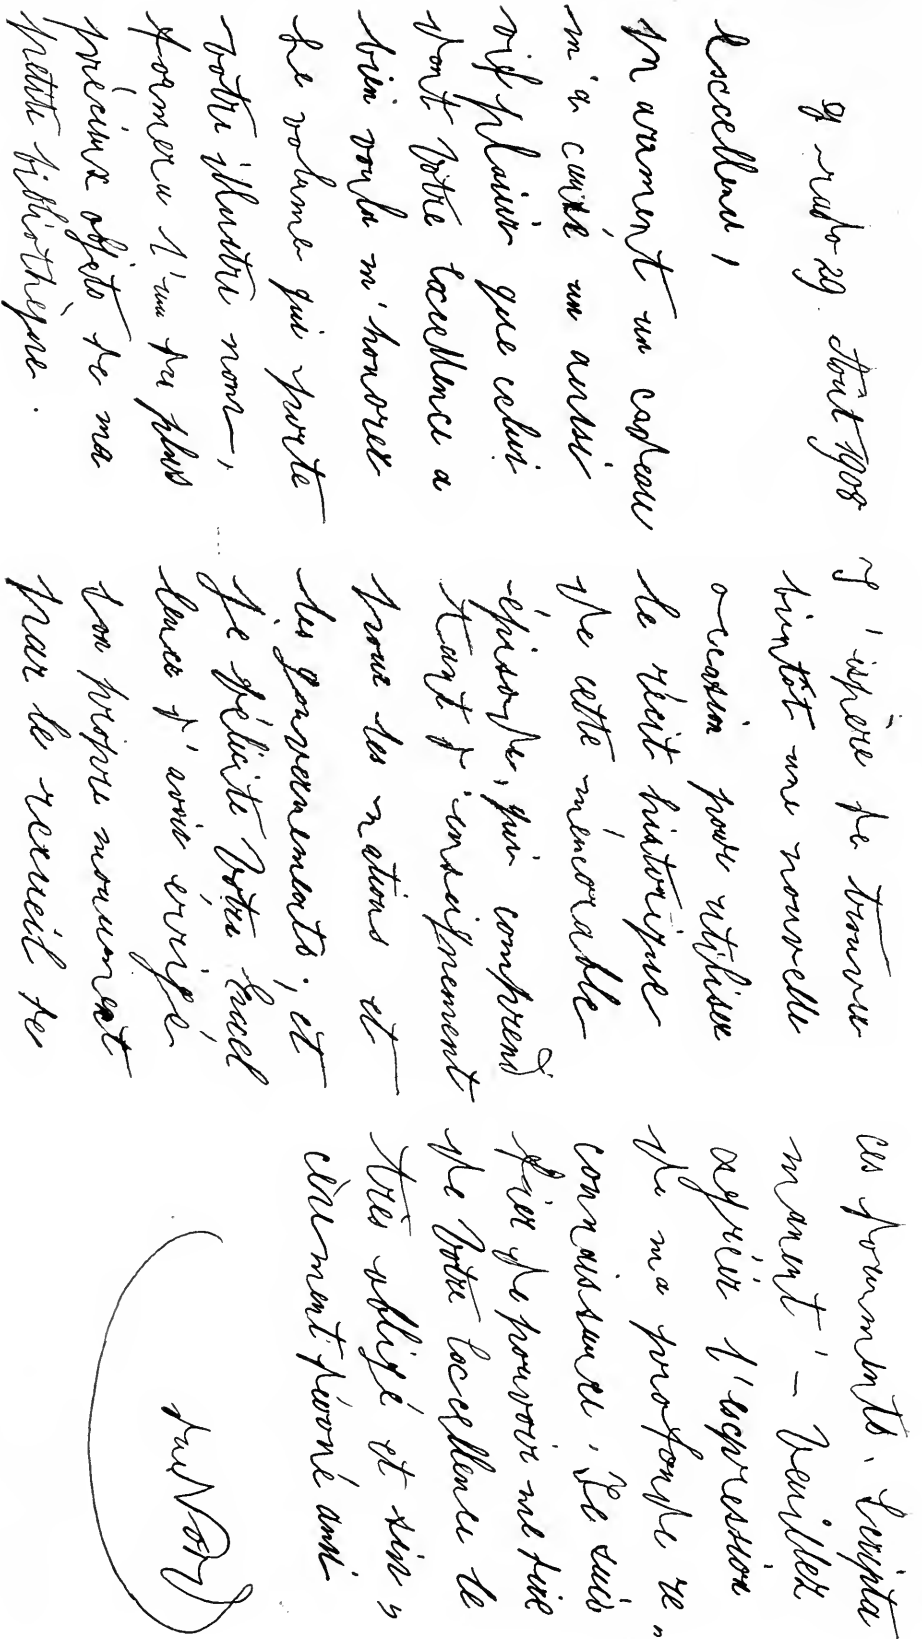 29. Août 1908
Excellence,
Rarement un cadeau
m'a causé un aussi
vif plaisir que celui
dont Votre Excellence a
bien voulu m'honorer
Le volume qui porte
votre illustre nom,
formera l'un des plus
précieux objets de ma
petite bibliothèque.
J'espère de trouver
bientôt une nouvelle
occasion pour utiliser
le récit historique
de cette mémorable
épisode, qui comprend
tant d'enseignement
pour les nations et
les gouvernements; et
je félicite Votre Excel
lence d'avoir érrigé
son propre monument
par le recueil de
ces documents. Scripta
manent! – Veuillez
agréer l'expression
de ma profonde re"
connaissance. Je suis
fier de pouvoir me dire
de Votre Excellence le
très obligé et sin"
cèrement dévoué ami